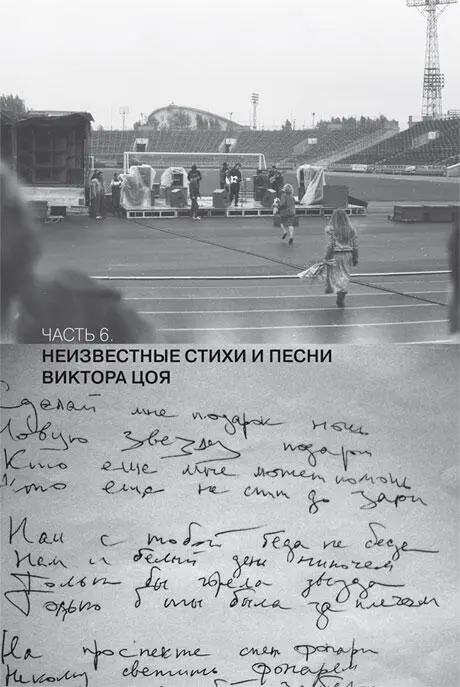 ЧАСТЬ 6.
НЕИЗВЕСТНЫЕ СТИХИ И ПЕСНИ
ВИКТОРА ЦОЯ
Сделай мне подарок ночь
Новую звезду подари
Кто еще мне может помочь
Кто еще не спит до зари
Нам с тобой беда не беда
Нам и белый день нипочем
Только бы горела звезда
Только б ты была за плечом
На проспекте спят фонари
Некому светить фонарем